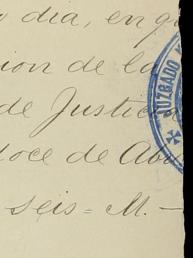 dia, en
ion de la
de Justic
doce de Ab
seis= M.—
JUZGADO M